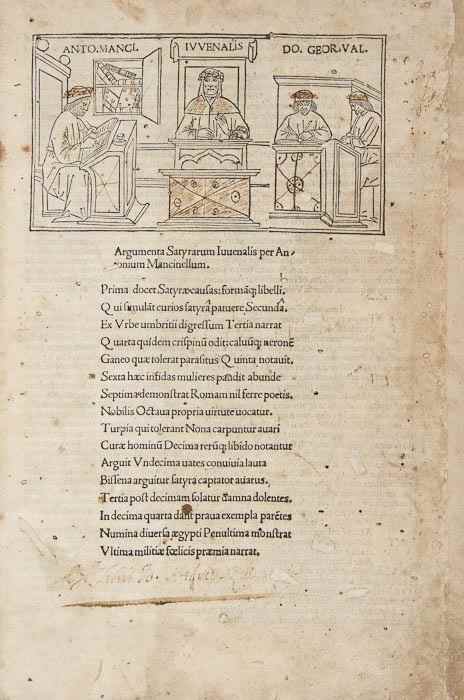 ANTO. MANCI.
IVVENALIS
DO. GEOR. VAL.
Argumenta Satyrarum Iuuenalis per An-
tonium Mancinellum.
Prima docet Satyræ causas: formāq; libelli.
Qui simulāt curios satyrā patuere Secundā.
Ex Vrbe umbritii digressum Tertia narrat
Quarta quidem crispinū odit: caluūq; neronē
Ganeo quæ tolerat parasitus Quinta notauit.
Sexta hæc infidas mulieres pādit abunde
Septima demonstrat Romam nil ferre poetis.
Nobilis Octaua propria uirtute uocatur.
Turpia qui tolerant Nona carpuntur auari
Curæ hominū Decima rerūq; libido notantur
Arguit Vndecima uates conuiuia lauta
Bissena arguitur satyra captator auarus.
Tertia post decimam solatur damna dolentes.
In decima quarta dant praua exempla parētes
Numina diuersa ægypti Penultima mōstrat
Vltima militiæ fœlicis præmia narrat.